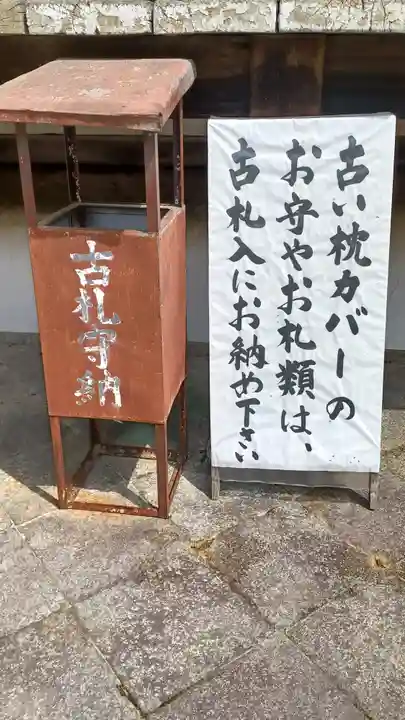 古い枕カバーの
お守やお札類は、
古札入にお納め下さい
古札守納